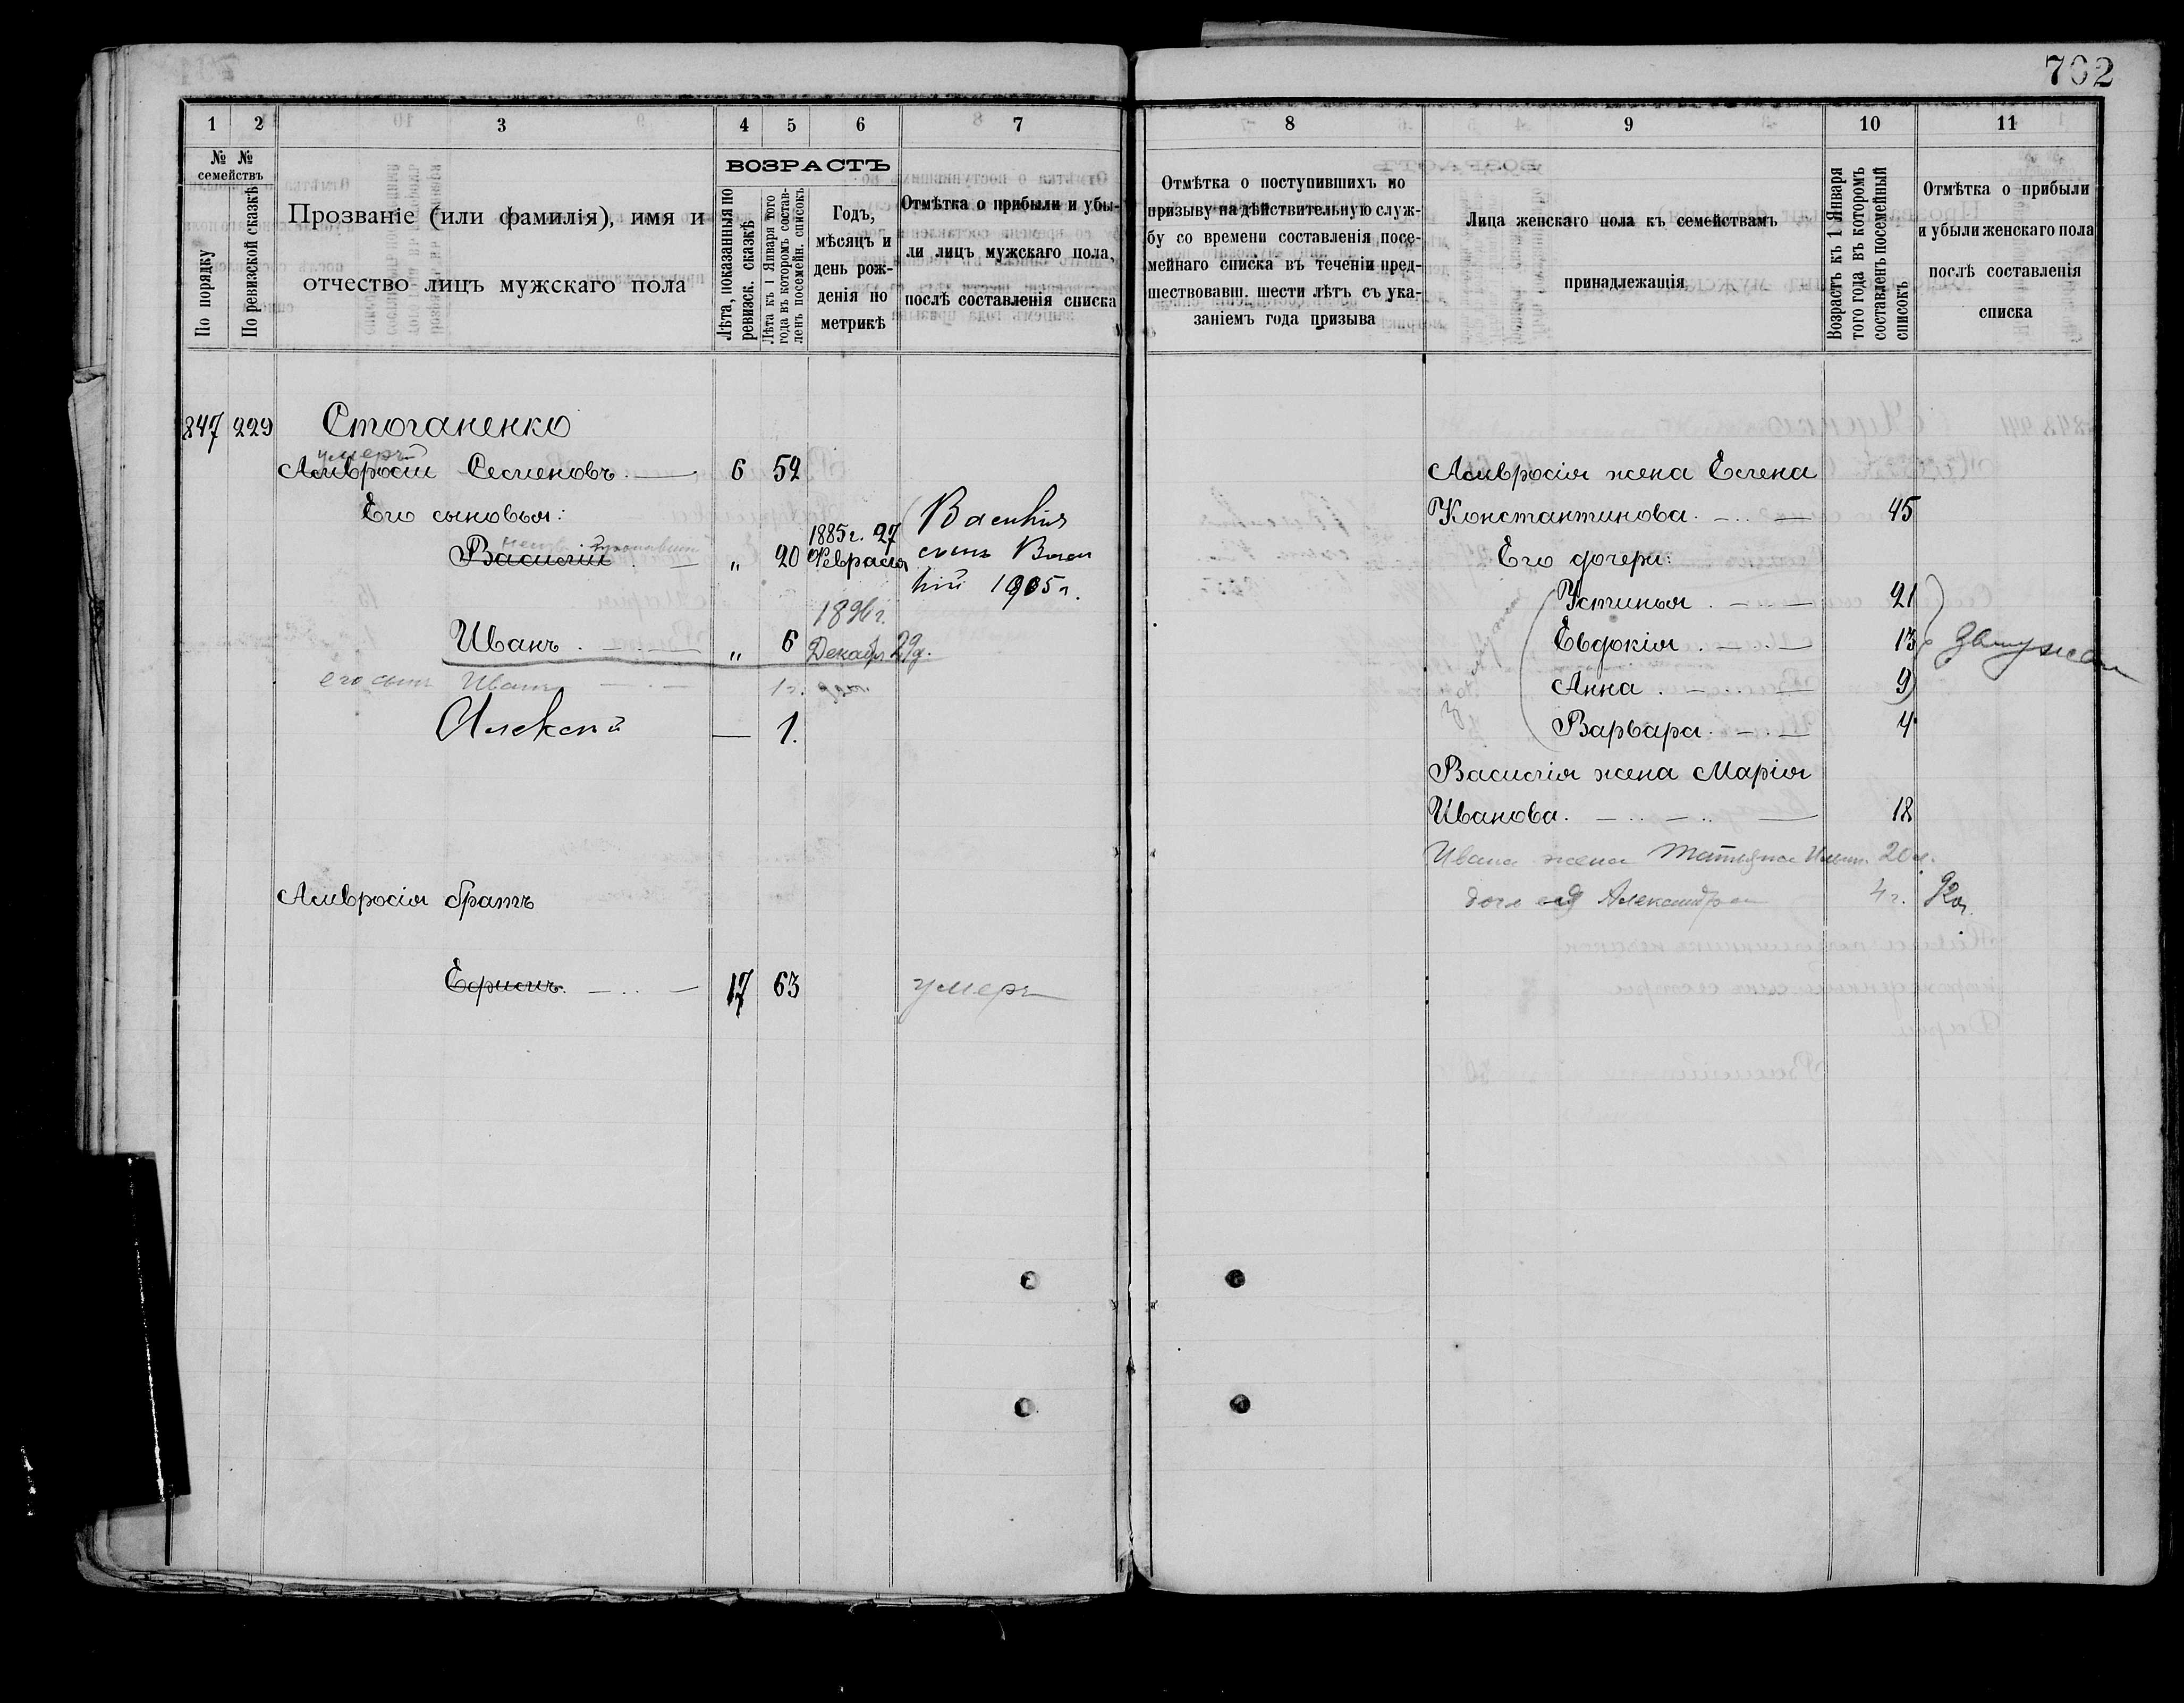 702
1 2 3 4 5 6 7
№ № семействъ
По порядку
По ревизской сказкѣ
Прозваніе (или фамилія), имя и
отчество лицъ мужскаго пола
ВОЗРАСТЪ
Лѣта, показанныя по
ревизск. сказкѣ
Лѣта къ 1 Января того
года въ которомъ состав-
ленъ посемейн. списокъ
Годъ,
мѣсяцъ и
день рож-
денія по
метрикѣ
Отмѣтка о прибыли и убы-
ли лицъ мужскаго пола,
послѣ составленія списка
847 229 Стоганенко
умеръ
Амвросій Семеновъ. 6 52
Его сыновья:
1885 г. 27
Василій „ 20 Февраля
Василія
сынъ Васи
лій 1905 г.
1896 г.
Иванъ „ 6 Декабр 29 д.
его сынъ Иванъ 1 г.
Алексій — 1.
Амвросія братъ
Ефимъ. 17 63 умеръ
8 9 10 11
Отмѣтка о поступившихъ по
призыву на дѣйствительную служ-
бу со времени составленія посе-
мейнаго списка въ теченіи пред-
шествовавш. шести лѣтъ съ ука-
заніемъ года призыва
Лица женскаго пола къ семействамъ
принадлежащія
Возрастъ къ 1 Января
того года въ которомъ
составленъ посемейный
списокъ
Отмѣтка о прибыли
и убыли женскаго пола
послѣ составленія
списка
Амвросія жена Елена
Константинова. 45
Его дочери:
Устинья 21
Евдокія 13 Замужем
Анна 9
Варвара 4
Замужем
Василія жена Марія
Иванова. 18
Ивана жена Татьяна 20 л.
Александра 4 г.